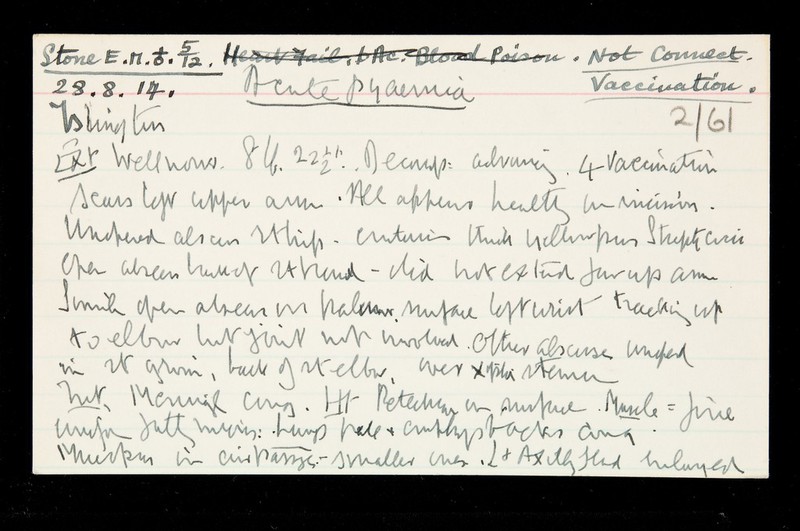 Stone E.M. 5/12. Heart Fail. Bac. Blood Poison. Not Connect.
28.8.14. Acute pyaemia Vaccination.
Islington 2/61
Ext Well nour. 22½". Decomp: advancing. 4 Vaccination
scars left upper arm. All appears healthy on incision.
Unopened abscess rt hip - contains thick yellow pus Streptococci
Open abscess back of rt hand - did not extend far up arm
Similar open abscess on palmar surface left wrist tracking up
to elbow but joint not involved. Other abscesses unopened
in rt groin, back of rt elbow, over sternum
Int. Mening cong. Ht Petechiae on surface. Muscle = fine
fatty lungs pale + cong.
in air passages - smaller ones. Lt Axillary gland enlarged